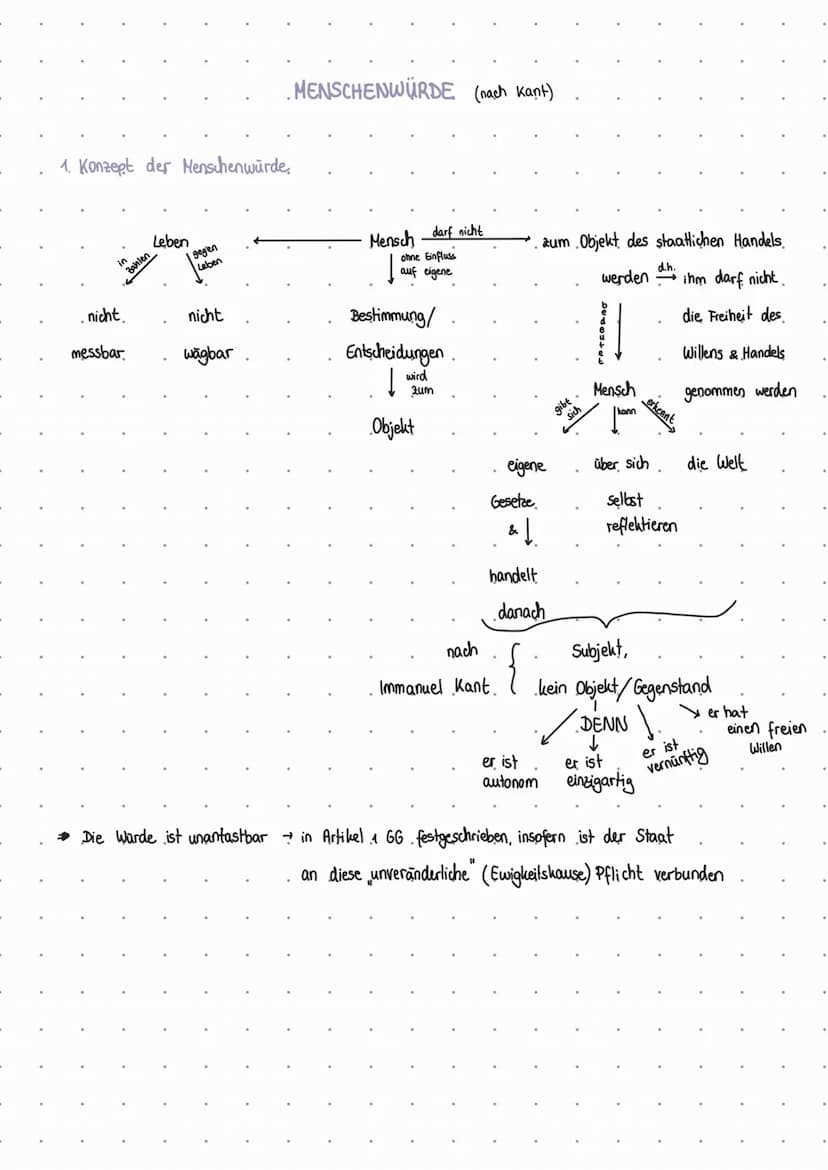 MENSCHENWÜRDE (nach Kant)
1. Konzept der Menschenwürde
Leben
in Zahlen
gegen Leben
nicht messbar
nicht wägbar
Mensch
darf nicht
zum Objekt des staatlichen Handels
ohne Einfluss
auf eigene
Bestimmung/
Entscheidungen
wird
zum
Objekt
werden d.h. ihm darf nicht
die Freiheit des
Willens & Handels
genommen werden
bedeutet
Mensch
gibt sich
kann
erkennt
eigene
Gesetze
&
handelt
danach
über sich
selbst
reflektieren
die Welt
nach
Immanuel Kant
Subjekt,
kein Objekt/Gegenstand
DENN
er ist
autonom
er ist
einzigartig
er ist
vernünftig
er hat
einen freien
Willen
Die Würde ist unantastbar → in Artikel 1 GG festgeschrieben, insofern ist der Staat
an diese „unveränderliche" (Ewigkeilskause) Pflicht verbunden